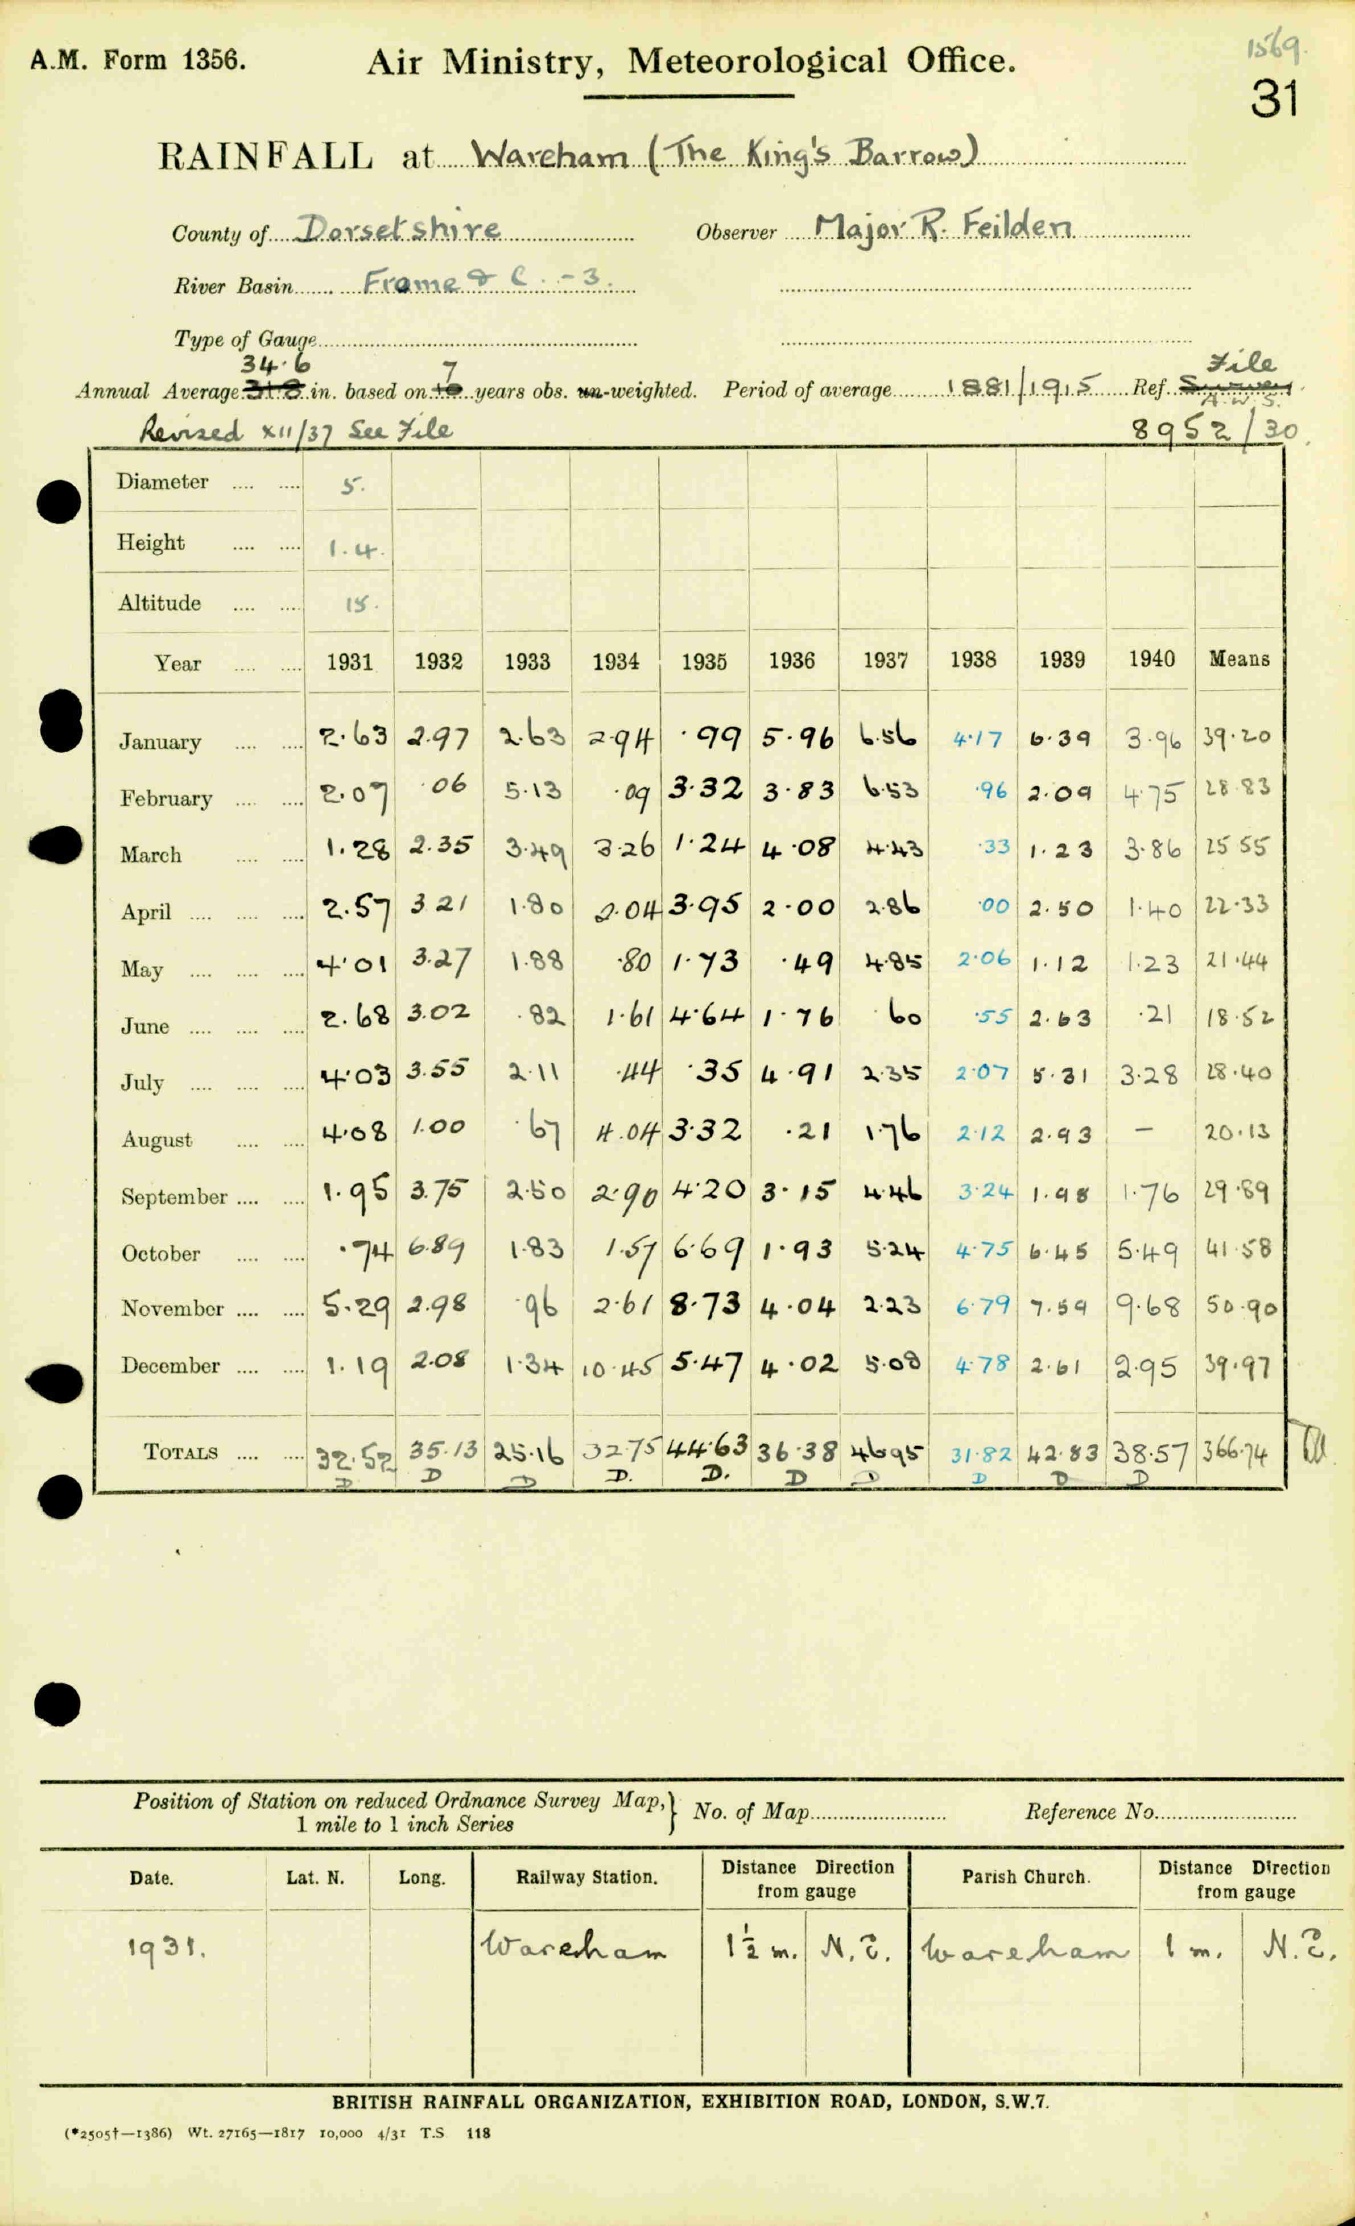 1569.
A.M. Form 1356. Air Ministry, Meteorological Office.
31
RAINFALL at Wareham (The King's Barrow)
County of Dorsetshire Observer Major R. Feilden
River Basin Frome & C. -3.
Type of Gauge
34.6 7 File
Annual Average in. based on years obs. un-weighted. Period of average 1881/1915 Ref. Survey
A.W.S.
Revised XII/37 See File 8952/30.
Diameter 5.
Height 1.4.
Altitude 15.
Year 1931 1932 1933 1934 1935 1936 1937 1938 1939 1940 Means
January 2.63 2.97 2.63 2.94 .99 5.96 6.56 4.17 6.39 3.96 39.20
February 2.07 .06 5.13 .09 3.32 3.83 6.53 .96 2.09 4.75 28.83
March 1.28 2.35 3.49 3.26 1.24 4.08 4.43 .33 1.23 3.86 25.55
April 2.57 3.21 1.80 2.04 3.95 2.00 2.86 .00 2.50 1.40 22.33
May 4.01 3.27 1.88 .80 1.73 .49 4.85 2.06 1.12 1.23 21.44
June 2.68 3.02 .82 1.61 4.64 1.76 .60 .55 2.63 .21 18.52
July 4.03 3.55 2.11 .44 .35 4.91 2.35 2.07 5.31 3.28 28.40
August 4.08 1.00 .67 4.04 3.32 .21 1.76 2.12 2.93 — 20.13
September 1.95 3.75 2.50 2.90 4.20 3.15 4.46 3.24 1.98 1.76 29.89
October .74 6.89 1.83 1.57 6.69 1.93 5.24 4.75 6.45 5.49 41.58
November 5.29 2.98 .96 2.61 8.73 4.04 2.23 6.79 7.59 9.68 50.90
December 1.19 2.08 1.34 10.45 5.47 4.02 5.08 4.78 2.61 2.95 39.97
TOTALS 32.52 35.13 25.16 32.75 44.63 36.38 46.95 31.82 42.83 38.57 366.74
D D D D. D. D D D D D
Position of Station on reduced Ordnance Survey Map, } No. of Map Reference No.
1 mile to 1 inch Series
Date. Lat. N. Long. Railway Station. Distance Direction from gauge Parish Church. Distance Direction from gauge
1931. Wareham 1½ m. N.E. Wareham 1 m. N.E.
BRITISH RAINFALL ORGANIZATION, EXHIBITION ROAD, LONDON, S.W.7.
(*2505†—1386) Wt. 27165—1817 10,000 4/31 T.S 118